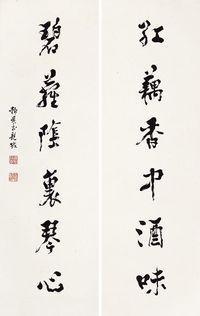 紅藕香中酒味
碧蘿陰裏琴心